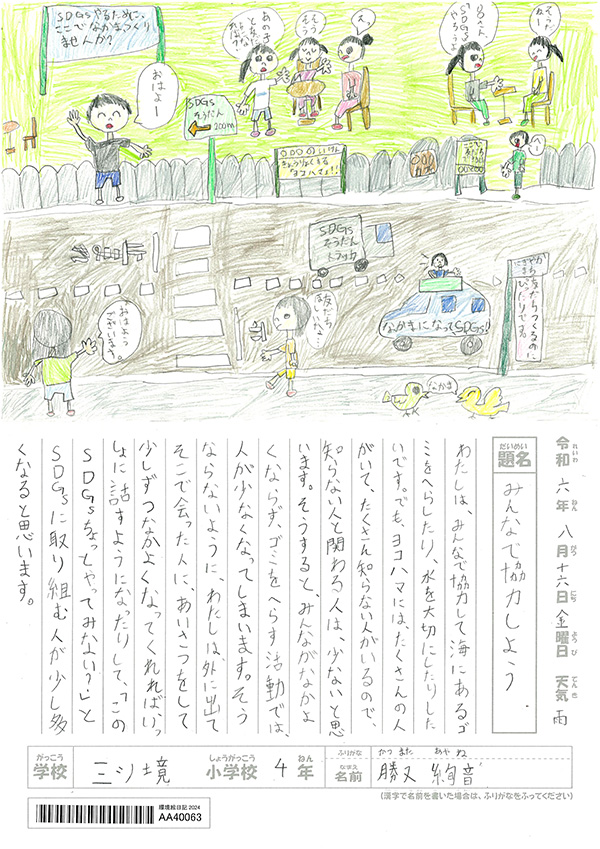 SDGsやるために、
ここでなかまつくり
ませんか?
おはよー
SDGs
そうだん
200m
えっ
SDGs
やろうよ
へー
〇〇〇のいけん
きょうりょくする
「ヨコハマ」!!
SDGs
そうだん
トラック
おはよう
ございます。
友だち
ほしいな…
なかまになってSDGs!
友だちつくるのに
ぴったりです。
なかま
令和六年八月十六日金曜日 天気雨
れいわ ねん がつ にち ようび てんき
だいめい
題名
みんなで協力しよう
わたしは、みんなで協力して海にあるゴ
ミをへらしたり、水を大切にしたりした
いです。でも、ヨコハマには、たくさんの人
がいて、たくさん知らない人がいるので、
知らない人と関わる人は、少ないと思
います。そうすると、みんながなかよ
くならず、ゴミをへらす活動では、
人が少なくなってしまいます。そう
ならないように、わたしは、外に出て
そこで会った人に、あいさつをして
少しずつなかよくなってくれれば、いっ
しょに話すようになったりして、「この
SDGsちょっとやってみない?」と
SDGsに取り組む人が少し多
くなると思います。
がっこう
学校
三ツ境
しょうがっこう
小学校
4
ねん
年
ふりがな
なまえ
名前
かつ また あや ね
勝又 絢音
(漢字で名前を書いた場合は、ふりがなをふってください)
環境絵日記 2024
AA40063